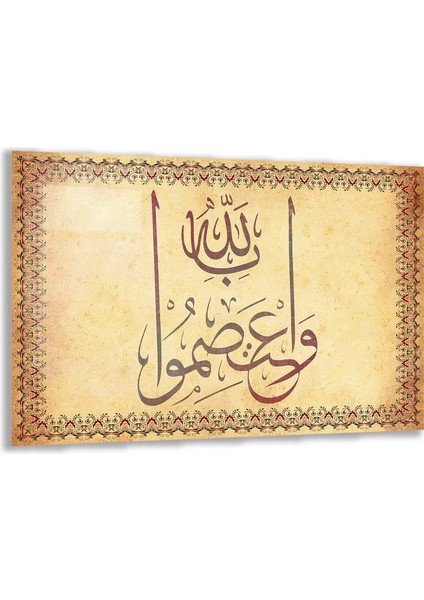 واعتصموا
بِاللّٰهِ